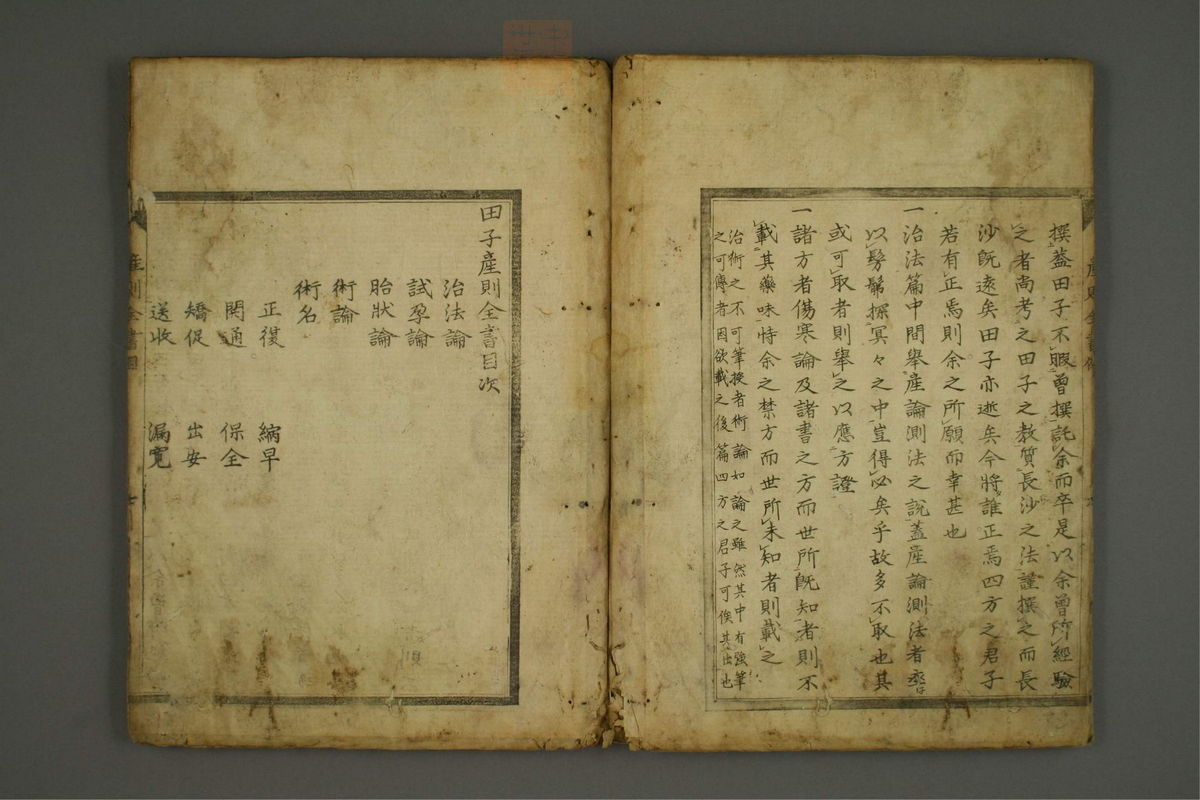 撰蓋田子不暇曾撰託余而卒是以余曾所經驗
之者尚考之田子之教質長沙之法謹撰之而長
沙既遠矣田子亦逝矣今將誰正焉四方之君子
若有正焉則余之所願而幸甚也
一治法篇中間舉産論測法之說蓋産論測法者
以髣髴探冥々之中豈得必矣乎故多不取也其
或可取者則舉之以應方證
一諸方者傷寒論及諸書之方而世所既知者則不
載其藥味恃余之禁方而世所未知者則載之
治術之不可筆授者術論如論之雖然其中有強筆
之可傳者因欲載之後篇四方之君子可俟其出也
田子産則全書目次
治法論
試孕論
胎狀論
術論
術名
正復 縮早
関通 保全
矯促 出安
送收 漏寛
産則全書目